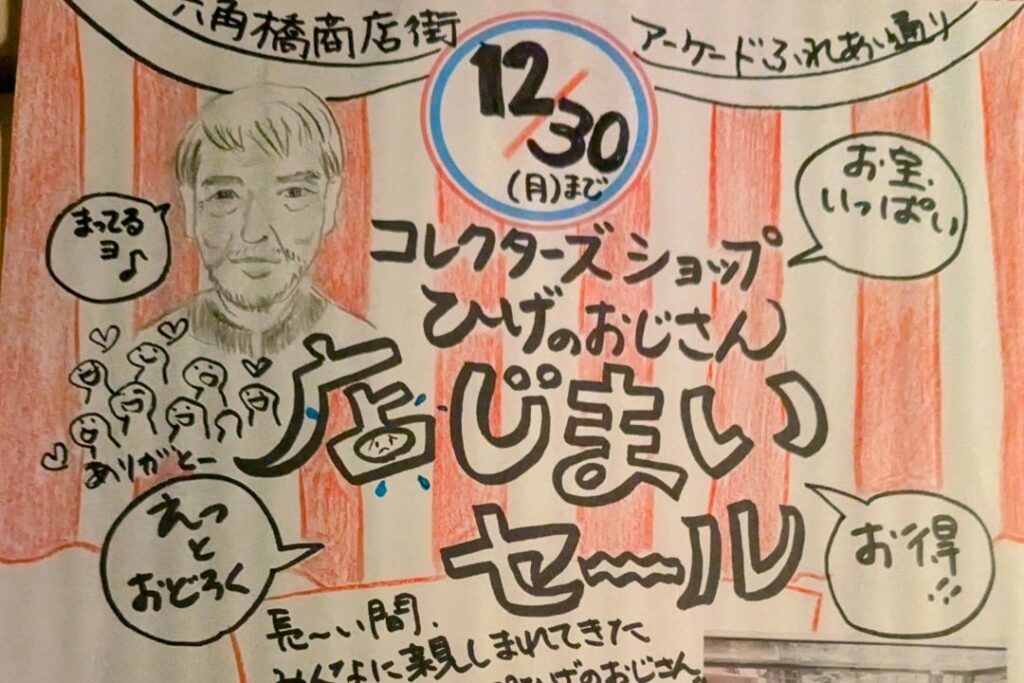 六角橋商店街
アーケードふれあい通り
12/30
(月)まで
まってる
ヨ♪
お宝、
いっぱい
コレクターズショップ
ひげのおじさん
店じまい
セール
ありがとー
えっ
と
おどろく
お得
!!
長〜い間、
みんなに親しまれてきた
ひげのおじさん